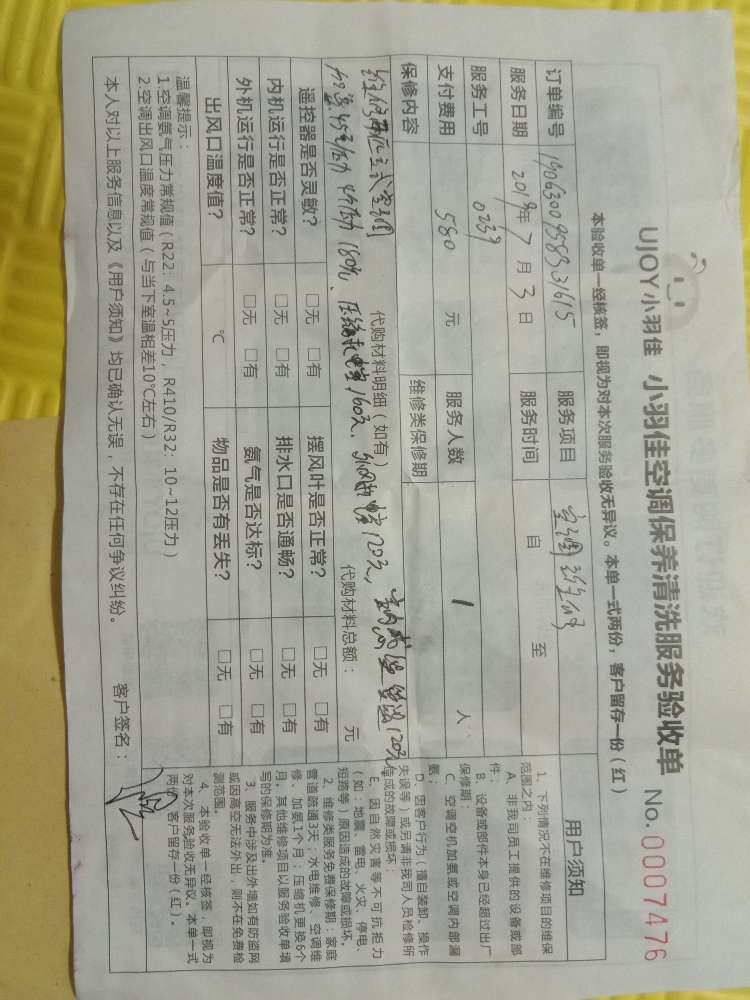 UJOY小羽佳 小羽佳空调保养清洗服务验收单 No.0007476
本验收单一经核签，即视为对本次服务验收无异议。本单一式两份，客户留存一份（红）
订单编号 服务项目 空调
服务日期 2019年7月3日 服务时间 自 至
服务工号 0239
支付费用 580 元 服务人数 1 人
保修内容 维修类保修期
代购材料明细（如有）
代购材料总额： 元
加氟45元/压力 4个压力 180元、压缩机电容160元、120元, 120元
遥控器是否灵敏？ □无 □有 摆风叶是否正常？ □无 □有
内机运行是否正常？ □无 □有 排水口是否通畅？ □无 □有
外机运行是否正常？ □无 □有 氨气是否达标？ □无 □有
出风口温度值？ ℃ 物品是否有丢失？ □无 □有
温馨提示：
1.空调氨气压力常规值（R22：4.5~5压力，R410/R32：10~12压力）
2.空调出风口温度常规值（与当下室温相差10℃左右）
本人对以上服务信息以及《用户须知》均已确认无误，不存在任何争议纠纷。 客户签名：
用户须知
1、下列情况不在维修项目的维保
范围之内：
A、非我司员工提供的设备或部
件；
B、设备或部件本身已经超过出厂
保修期；
C、空调空机加氨或空调内部漏
氨；
D、因客户行为（擅自装卸、操作
失误等）或另请非我司人员检修所
造成的故障或损坏；
E、因自然灾害等不可抗拒力
（如：地震、雷电、火灾、停电、
短路等）原因造成的故障或损坏。
2、维修类服务免费保修期：家庭
管道疏通3天；水电维修、空调维
修、加氨1个月；压缩机更换6个
月，其他维修项目以服务验收单填
写的保修期为准。
3、服务中涉及出外墙如有防盗网
或因高空无法外出，则不在免费检
测范围。
4、本验收单一经核签，即视为
对本次服务验收无异议。本单一式
两份，客户留存一份（红）。